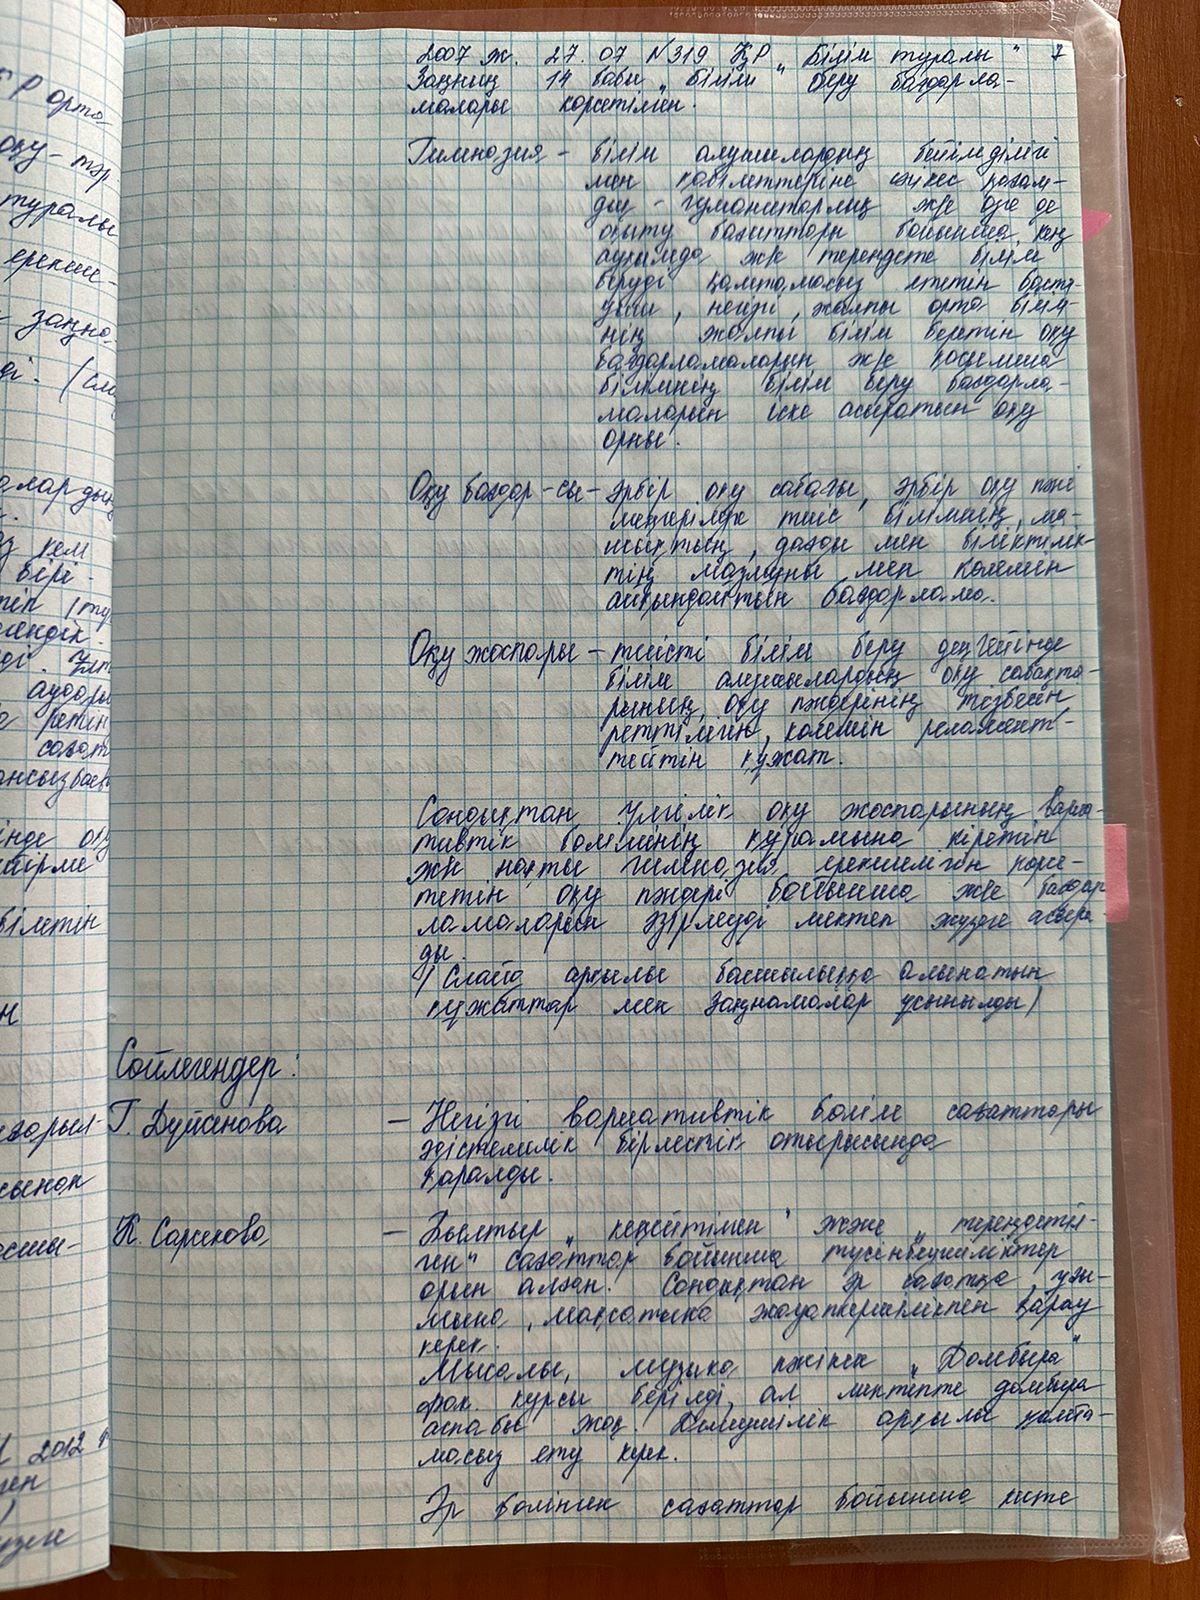 2007 ж. 27.07 №319 ҚР „Білім туралы" 7
Заңның 14 бабы „білім беру бағдарла-
малары көрсетілген.
Гимназия – білім алушылардың бейімділігі
мен қабілеттеріне сәйкес қоғам-
дық - гуманитарлық және өзге де
оқыту бағыттары бойынша кең
ауқымда және тереңдете білім
беруді қамтамасыз ететін баста-
уыш, негізгі, жалпы орта білім-
нің жалпы білім беретін оқу
бағдарламаларын және қосымша
білімнің білім беру бағдарла-
маларын іске асыратын оқу
орны.
Оқу бағдар-сы – әрбір оқу сабағы, әрбір оқу пәні
меңгерілуге тиіс білімнің, ма-
шықтың, дағды мен біліктілік-
тің мазмұны мен көлемін
айқындайтын бағдарлама.
Оқу жоспары – тиісті білім беру деңгейінде
білім алушылардың оқу сабақта-
рының, оқу пәндерінің тізбесін
реттілігін, көлемін регламент-
тейтін құжат.
Сондықтан Үлгілік оқу жоспарының вариа-
тивтік бөлімінің құрамына кіретін
және нақты гимназия ерекшелігін көрсе-
тетін оқу пәндері бойынша және бағдар
ламаларын әзірлеуді мектеп жүзеге асыра-
ды.
/Слайд арқылы басшылыққа алынатын
құжаттар мен заңнамалар ұсынылды/
Сөйлегендер:
Г. Дүйсенова – Негізгі вариативтік бөлім сағаттары
әдістемелік бірлестік отырысында
қаралды.
К. Сарсекова – Былтыр „кеңейтілген" және „тереңдетіл-
ген" сағаттар бойынша түсінбеушіліктер
орын алған. Сондықтан әр сағатқа, ұғы-
мына, мақсатына жауапкершілікпен қарау
керек.
Мысалы, музыка пәнінен „Домбыра"
фак. курсы берілді, ал мектепте домбыра
аспабы жоқ. Демеушілік арқылы қамта-
масыз ету керек.
Әр бөлінген сағаттар бойынша